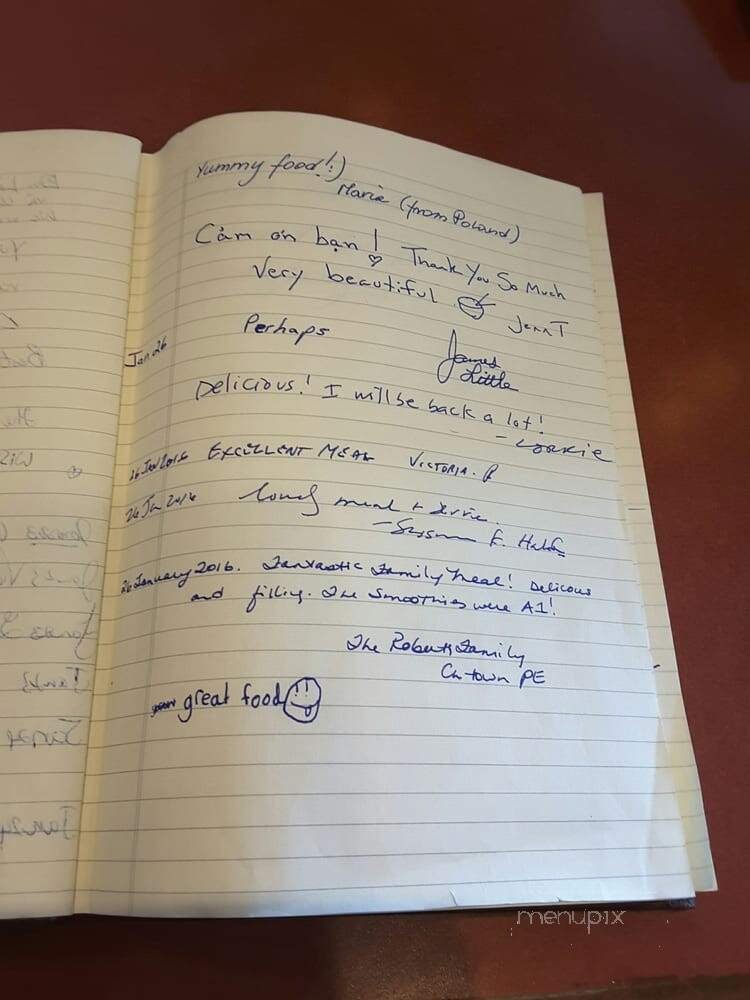 Yummy food!:)
Marie (from Poland)
Cảm ơn bạn! Thank You So Much
Very beautiful
Jenn T
Jan 26
Perhaps
James
Little
Delicious! I will be back a lot!
26 Jan 2016 EXCELLENT MEAL VICTORIA. P
26 Ja 2016 lovely meal + service.
- Susan E.
26 January 2016. Fantastic Family Meal! Delicious
and filling. The Smoothies were A1!
The Roberts Family
Ch-town PE
great food
menupix